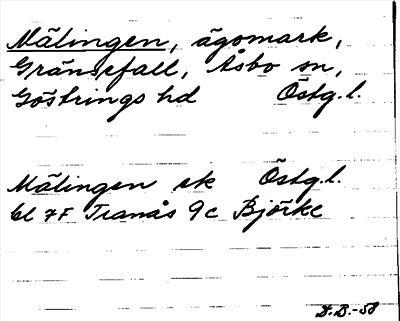 Mälingen, ägomark,
Gränsefall, Åsbo sn,
Göstrings hd Östg.l.
Mälingen ek Östg.l.
bl 7F Tranås 9c Björke
D.B.-58